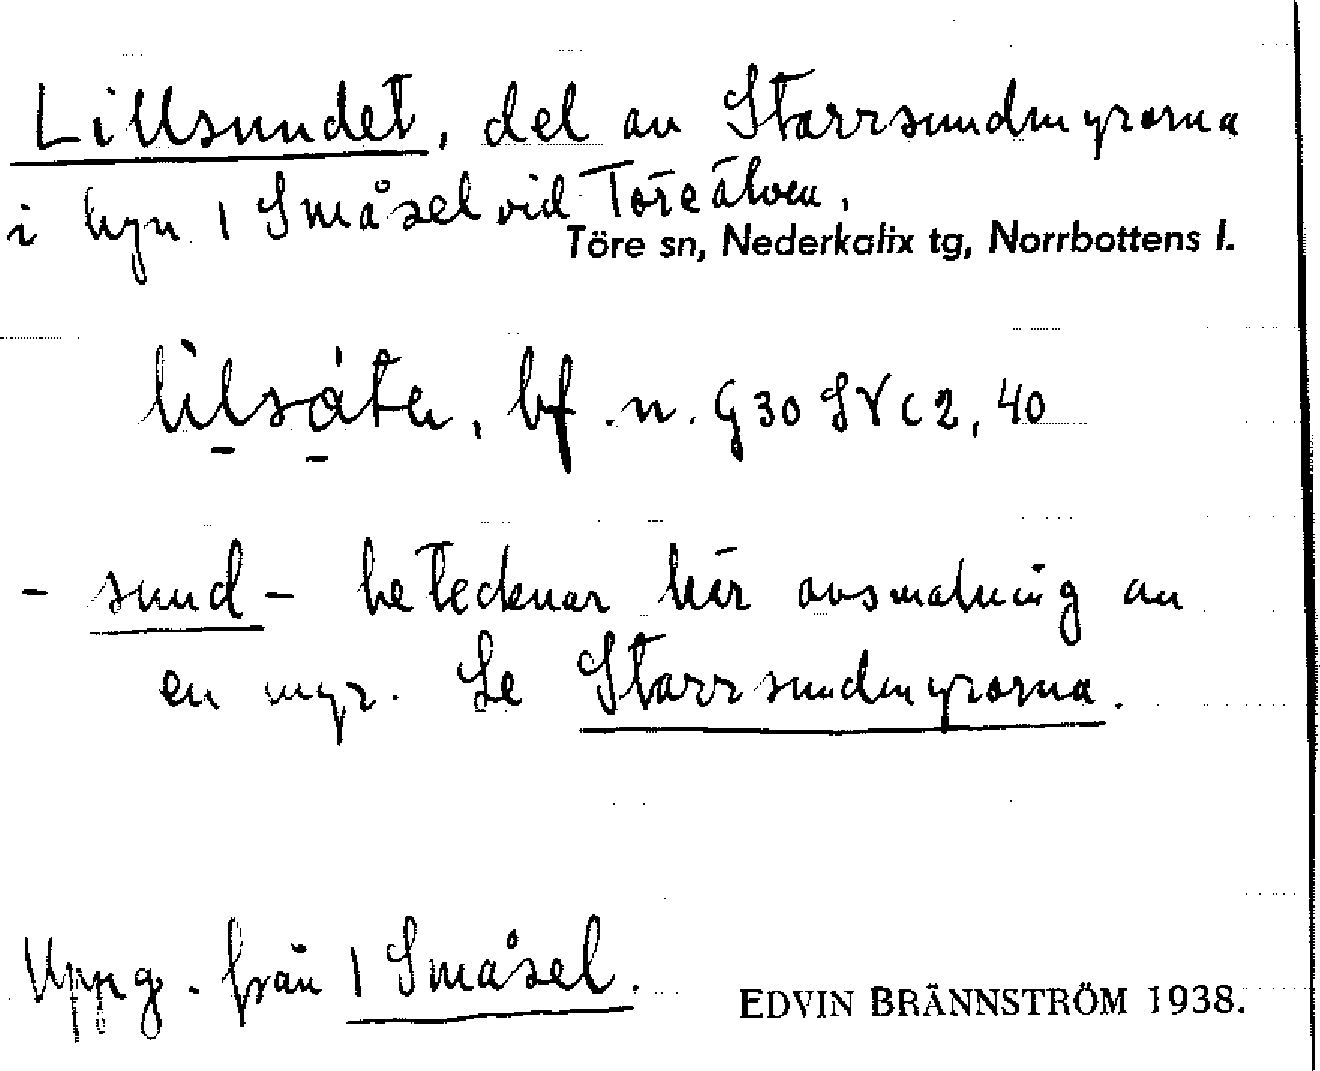 Lillsundet, del av Starrsundmyrarna
i byn 1 Småsel vid Töre älven.
Töre sn, Nederkalix tg, Norrbottens l.
bf. n. G30 SV c 2, 40
- sund - betecknar här avsmalning av
en myr. Se Starrsundmyrarna.
Uppg. från 1 Småsel.
EDVIN BRÄNNSTRÖM 1938.